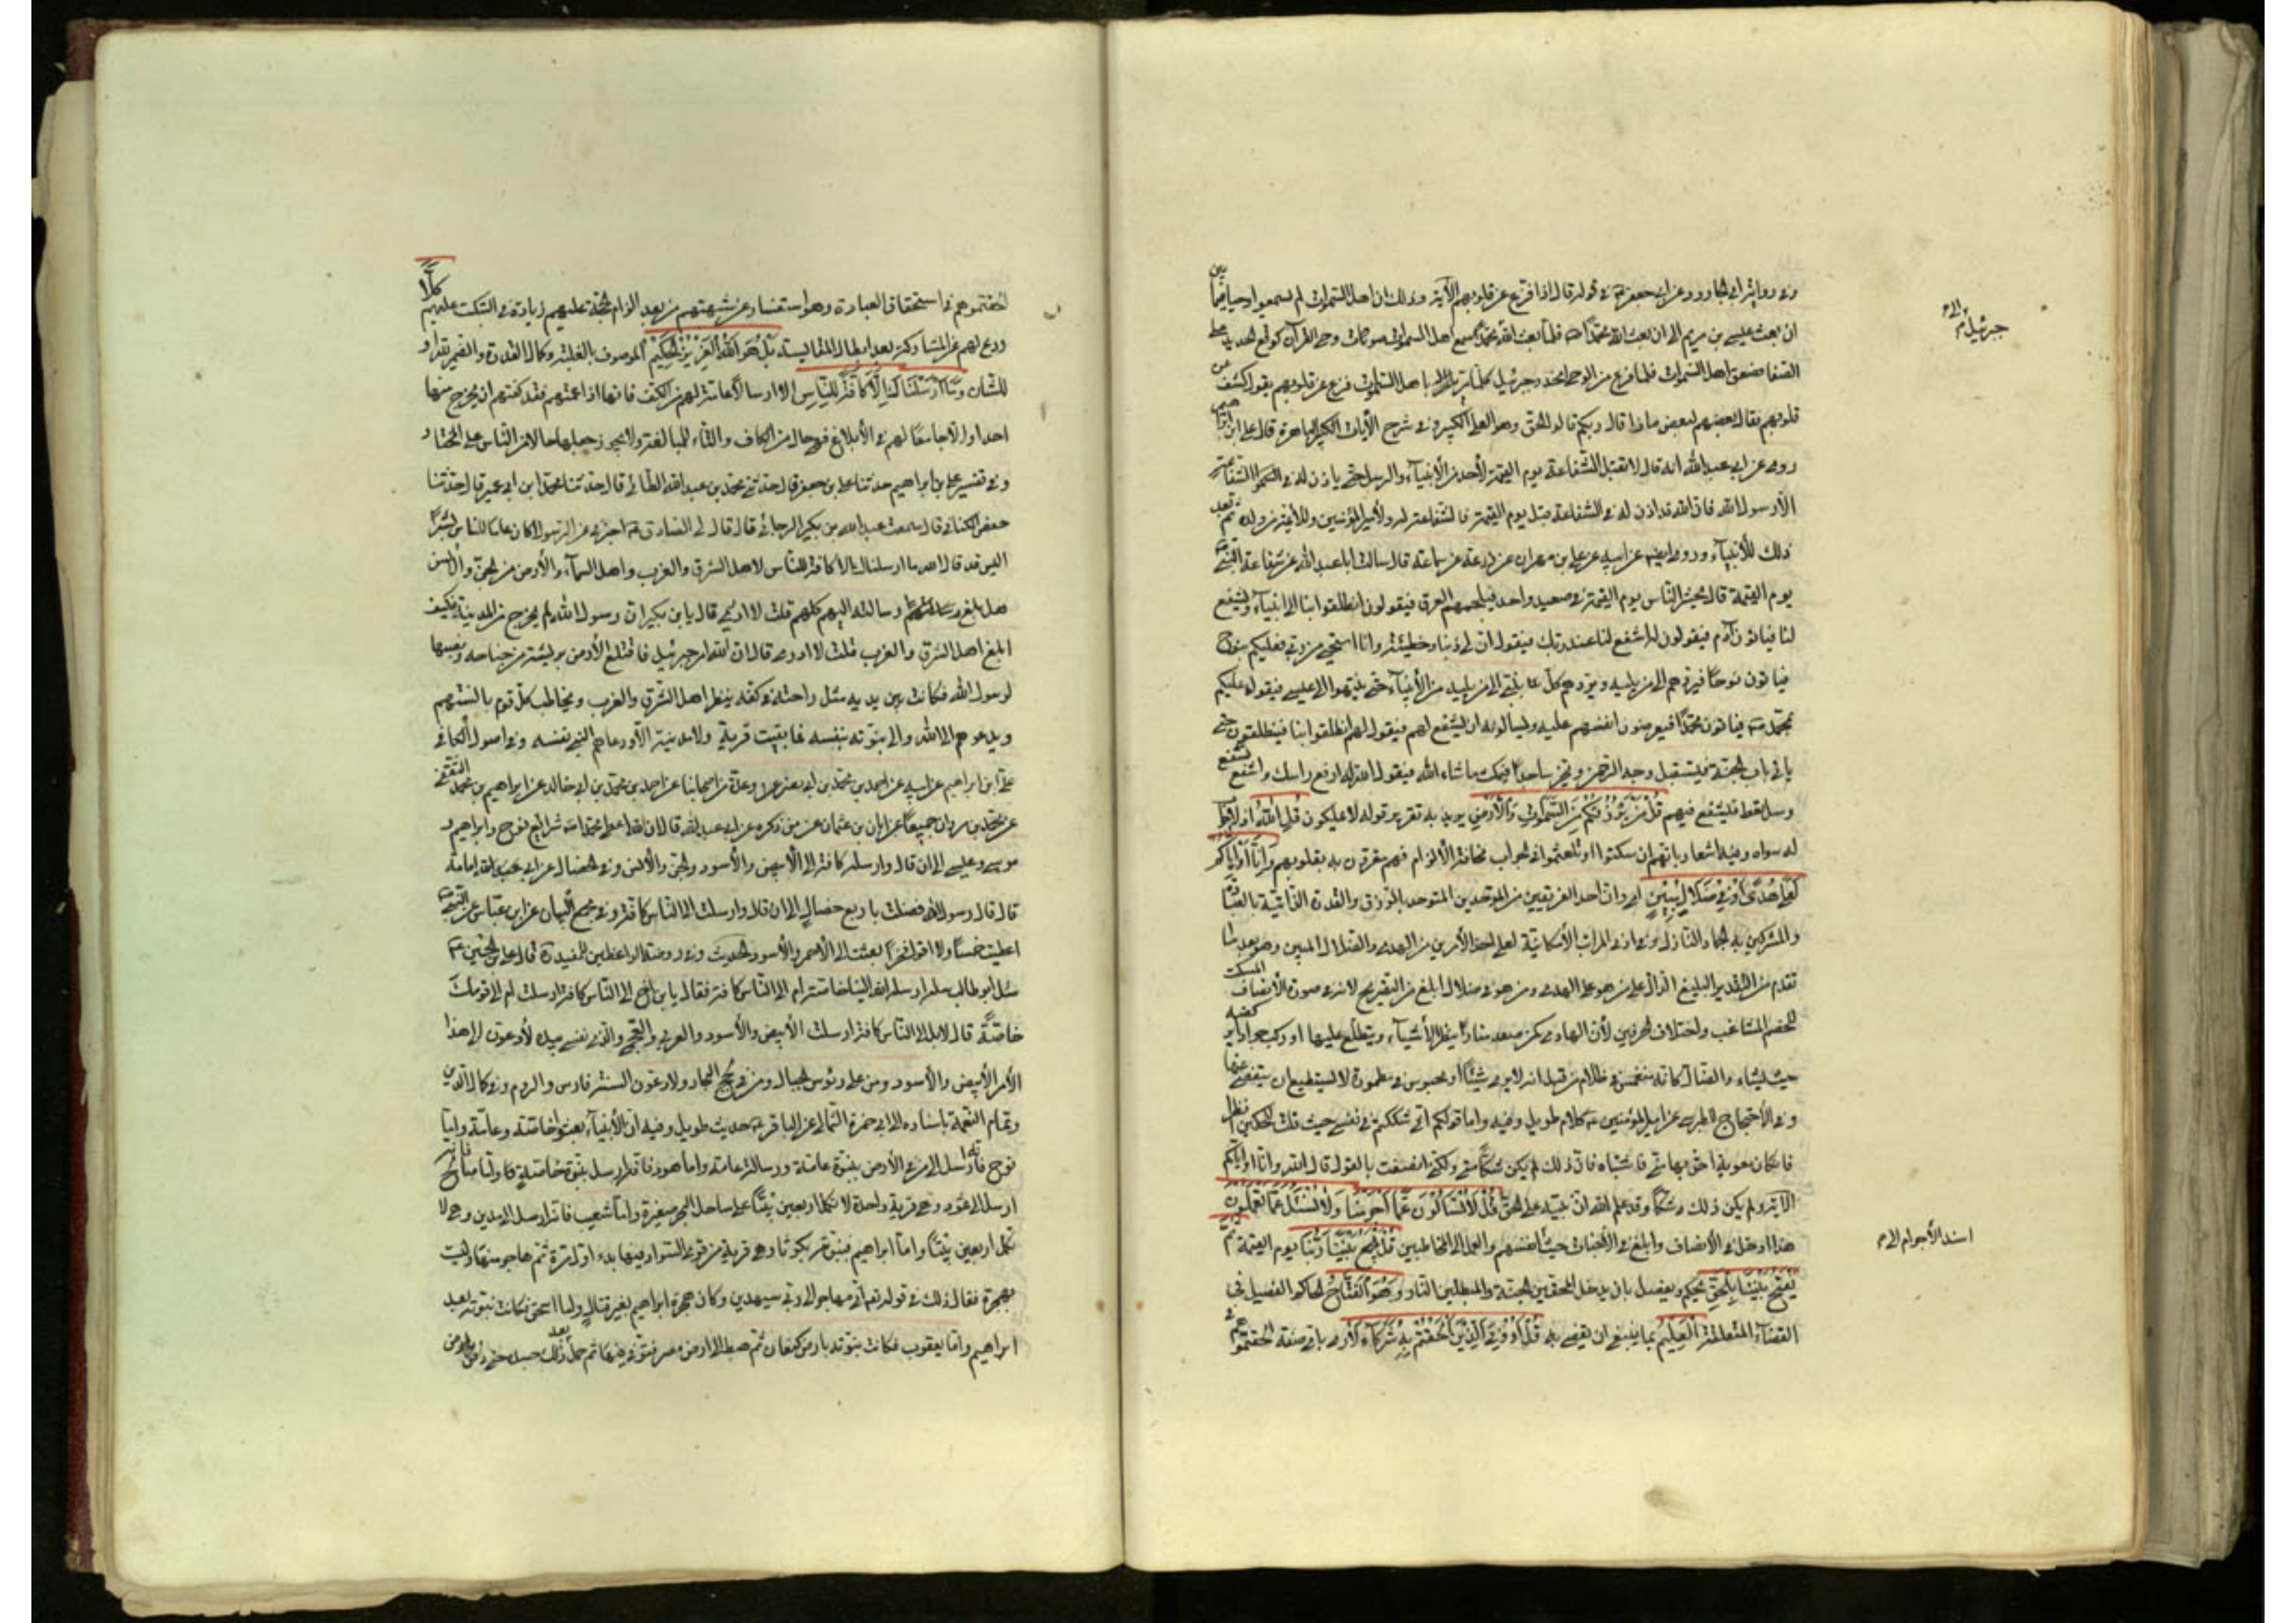 وفى رواية ابى الجارود عن ابى جعفر ع فى قوله قال اذا فزع عن قلوبهم الآية وذلك ان اهل السموات لم يسمعوا وحيا فيما بين
ان بعث عيسى بن مريم الى ان بعث الله محمدا ص فلما بعث الله محمدا سمع اهل السموات صوتا وحى القرآن كوقع الحديد على
الصفا فصعق اهل السموات فلما فزع من الوحى انحدر جبرئيل كلما مر باهل السموات فزع عن قلوبهم يقول كشف عن
قلوبهم فقال بعضهم لبعض ماذا قال ربكم قالوا الحق وهو العلى الكبير وفى شرح الآيات الباهرة قال على ابن ابراهيم
روى عن ابى عبد الله انه قال لا تقبل الشفاعة يوم القيمة لأحد من الأنبيآء والرسل حتى ياذن له فى الشفاعة
الا رسول الله فان الله قد اذن له فى الشفاعة قبل يوم القيمة فالشفاعة له ولأمير المؤمنين وللأئمة من ولده ثم بعد
ذلك للأنبيآء وروى ايضا عن ابيه عن على بن مهران عن زرعة عن سماعة قال سالت ابا عبد الله عن شفاعة النبى ص
يوم القيمة قال يحشر الناس يوم القيمة فى صعيد واحد فيلجمهم العرق فيقولون انطلقوا بنا الى الأنبيآء يشفع
لنا فياتون آدم فيقولون له اشفع لنا عند ربك فيقول ان لى ذنبا وخطيئة وانا استحى من ربى فعليكم بنوح
فياتون نوحا فيردهم الى من يليه ويردهم كل نبى الى من يليه من الأنبيآء حتى ينتهوا الى عيسى فيقول عليكم
بمحمد ص فياتون محمدا فيعرضون انفسهم عليه ويسالونه ان يشفع لهم فيقول لهم انطلقوا بنا فينطلقون حتى
ياتى باب الجنة فيستقبل وجه الرحمن ويخر ساجدا فيمكث ما شاء الله فيقول الله له ارفع راسك واشفع تشفع
وسل تعط فيشفع فيهم قُلْ مَنْ يَرْزُقُكُمْ مِنَ السَّمٰوَاتِ وَالْأَرْضِ يريد به تقرير قوله لا يملكون قُلِ اللّٰهُ اذ لا جواب
له سواه وفيه اشعار بانهم ان سكتوا او تلعثموا فى الجواب مخافة الألزام فهم مقرون به بقلوبهم وَاِنَّا اَوْ اِيَّاكُمْ
لَعَلٰى هُدًى اَوْ فِى ضَلَالٍ مُبِينٍ اى وان احد الفريقين من الموحدين المتوحد بالرزق والقدرة الذاتية بالعبادة
والمشركين به الجماد النازل فى ادنى المراتب الأمكانية لعلى احد الأمرين من الهدى والضلال المبين وهو بعد ما
تقدم من التقرير البليغ الدال على من هو على الهدى ومن هو فى ضلال ابلغ من التصريح لانه فى صورة الأنصاف المسكت
للخصم المشاغب واختلاف الحرفين لأن الهادى كمن صعد منارا ينظر الأشيآء ويتطلع عليها او ركب جوادا يركضه
حيث يشاء والضال كانه منغمس فى ظلام مرتبك لا يرى شيئا او محبوس فى مطمورة لا يستطيع ان يتفصى عنها
وفى الأحتجاج للطبرسى عن امير المؤمنين ع كلام طويل وفيه واما قولكم انى شككت فى نفسى حيث قلت للحكمين انظرا
فان كان معوية احق بها منى فاثبتاه فان ذلك لم يكن شكا منى ولكنى انصفت بالقول قال الله وانا او اياكم
الآية ولم يكن ذلك شكا وقد علم الله ان نبيه على الحق قُلْ لَا تُسْئَلُونَ عَمَّا اَجْرَمْنَا وَلَا نُسْئَلُ عَمَّا تَعْمَلُونَ
هذا ادخل فى الأنصاف وابلغ فى الأخبات حيث اسند الأجرام الى انفسهم والعمل الى المخاطبين قُلْ يَجْمَعُ بَيْنَنَا رَبُّنَا يوم القيمة ثُمَّ
يَفْتَحُ بَيْنَنَا بِالْحَقِّ يحكم ويفصل بان يدخل المحقين الجنة والمبطلين النار وَهُوَ الْفَتَّاحُ الحاكم الفيصل فى
القضآء المتغلقة الْعَلِيمُ بما ينبغى ان يقضى به قُلْ اَرُونِىَ الَّذِينَ اَلْحَقْتُمْ بِهِ شُرَكَآءَ لأرى باى صفة الحقتموهم
جبرئيل
اسند الأجرام الى
الحقتموهم فى استحقاق العبادة وهو استفسار عن شبهتهم من بعد الزام الحجة عليهم زيادة فى التبكيت عليهم كَلَّا
ردع لهم عن المشاركة بعد ابطال المقايسة بَلْ هُوَ اللّٰهُ الْعَزِيزُ الْحَكِيمُ الموصوف بالغلبة وكمال القدرة والضمير لله او
للشان وَمَا اَرْسَلْنَاكَ اِلَّا كَافَّةً لِلنَّاسِ الا ارسالا عامة لهم من الكف فانها اذا عمتهم فقد كفتهم ان يخرج منها
احد او الا جامعا لهم فى الأبلاغ فهى حال من الكاف والتآء للمبالغة ولا يجوز جعلها حالا من الناس على المختار
وفى تفسير على بن ابراهيم حدثنا على بن جعفر قال حدثنى محمد بن عبد الله الطائى قال حدثنا محمد ابن ابى عمير قال حدثنا
حفص الكنانى قال سمعت عبد الله بن بكير الرجانى قال قال لى الصادق ع اخبرنى عن الرسول كان عاما للناس بشيرا
اليس قد قال الله ما ارسلناك الا كافة للناس لاهل الشرق والغرب واهل السمآء والأرض من الجن والأنس
هل بلغ رسالته اليهم كلهم قلت لا ادرى قال يا بن بكير ان رسول الله لم يخرج من المدينة فكيف
ابلغ اهل الشرق والغرب قلت لا ادرى قال ان الله امر جبرئيل فاقتلع الأرض بريشة من جناحه ونصبها
لرسول الله فكانت بين يديه مثل راحته فى كفه ينظر اهل الشرق والغرب ويخاطب كل قوم بالسنتهم
ويدعوهم الى الله والى نبوته بنفسه فما بقيت قرية ولا مدينة الا ودعاهم النبى بنفسه وفى اصول الكافى
على ابن ابراهيم عن ابيه عن احمد بن محمد بن ابى نصر وعدة من اصحابنا عن احمد بن محمد بن خالد عن ابراهيم بن محمد الثقفى
عن محمد بن مروان جميعا عن ابان بن عثمان عمن ذكره عن ابى عبد الله قال ان الله اعطى محمدا ص شرايع نوح وابراهيم و
موسى وعيسى الى ان قال وارسله كافة الى الأبيض والأسود والجن والأنس وفى الخصال عن ابى امامة
قال قال رسول الله فضلت باربع خصال الى ان قال وارسلت الى الناس كافة وفى مجمع البيان عن ابن عباس عن النبى ص
اعطيت خمسا ولا اقول فخرا بعثت الى الأحمر والأسود الحديث وفى روضة الواعظين للمفيد قال على بن الحسين ع
سئل ابو طالب ارسله الله الينا خاصة ام الى الناس كافة فقال يا بن اخى الى الناس كافة ارسلت ام الى قومك
خاصة قال لا بل الى الناس كافة ارسلت الأبيض والأسود والعربى والعجمى والذى نفسى بيده لأدعون الى هذا
الأمر الأبيض والأسود ومن على رئوس الجبال ومن فى لجج البحار ولادعون السنة فارس والروم وفى كمال الدين
وتمام النعمة باسناده الى ابى حمزة الثمالى عن الباقر ع حديث طويل وفيه ان الأنبيآء بعثوا خاصة وعامة واما
نوح فانه ارسل الى من فى الأرض بنبوة عامة ورسالة عامة واما هود فانه ارسل بنبوة خاصة واما صالح فانه
ارسل الى ثمود وهى قرية واحدة لا تكمل اربعين بيتا على ساحل البحر صغيرة واما شعيب فانه ارسل الى مدين وهى لا
تكمل اربعين بيتا واما ابراهيم فنبوته بكوثا وهى قرية من قرى السواد فيها بدء اول امره ثم هاجر منها وليست
بهجرة فقال ذلك فى قوله تع انى مهاجر الى ربى سيهدين وكان هجرة ابراهيم بغير قتال واما اسحق فكانت نبوته بعد
ابراهيم واما يعقوب فكانت نبوته بارض كنعان ثم هبط الى ارض مصر فتوفى فيها ثم حمل بعد ذلك جسده حتى دفن بارض